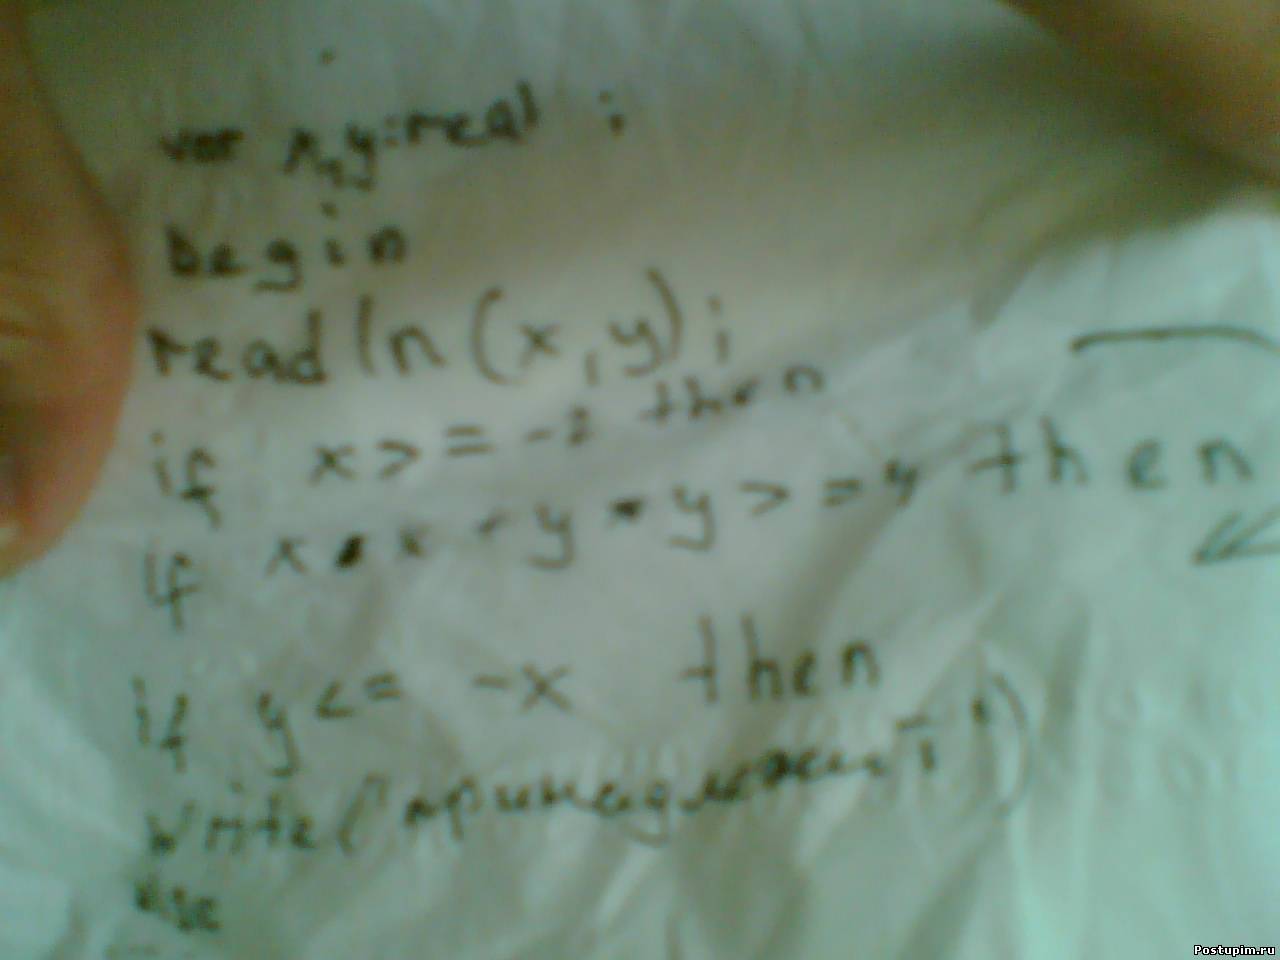 var x,y:real ;
begin
readln(x,y);
if x>=-2 then
if x*x+y*y>=4 then
if y<= -x then
write('принадлежит')
else
Postupim.ru